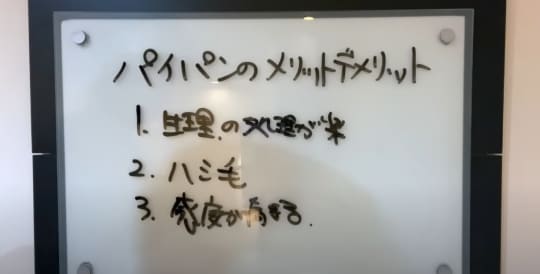 パイパンのメリットデメリット
1. 生理の処理が楽
2. ハミ毛
3. 感度が高まる.